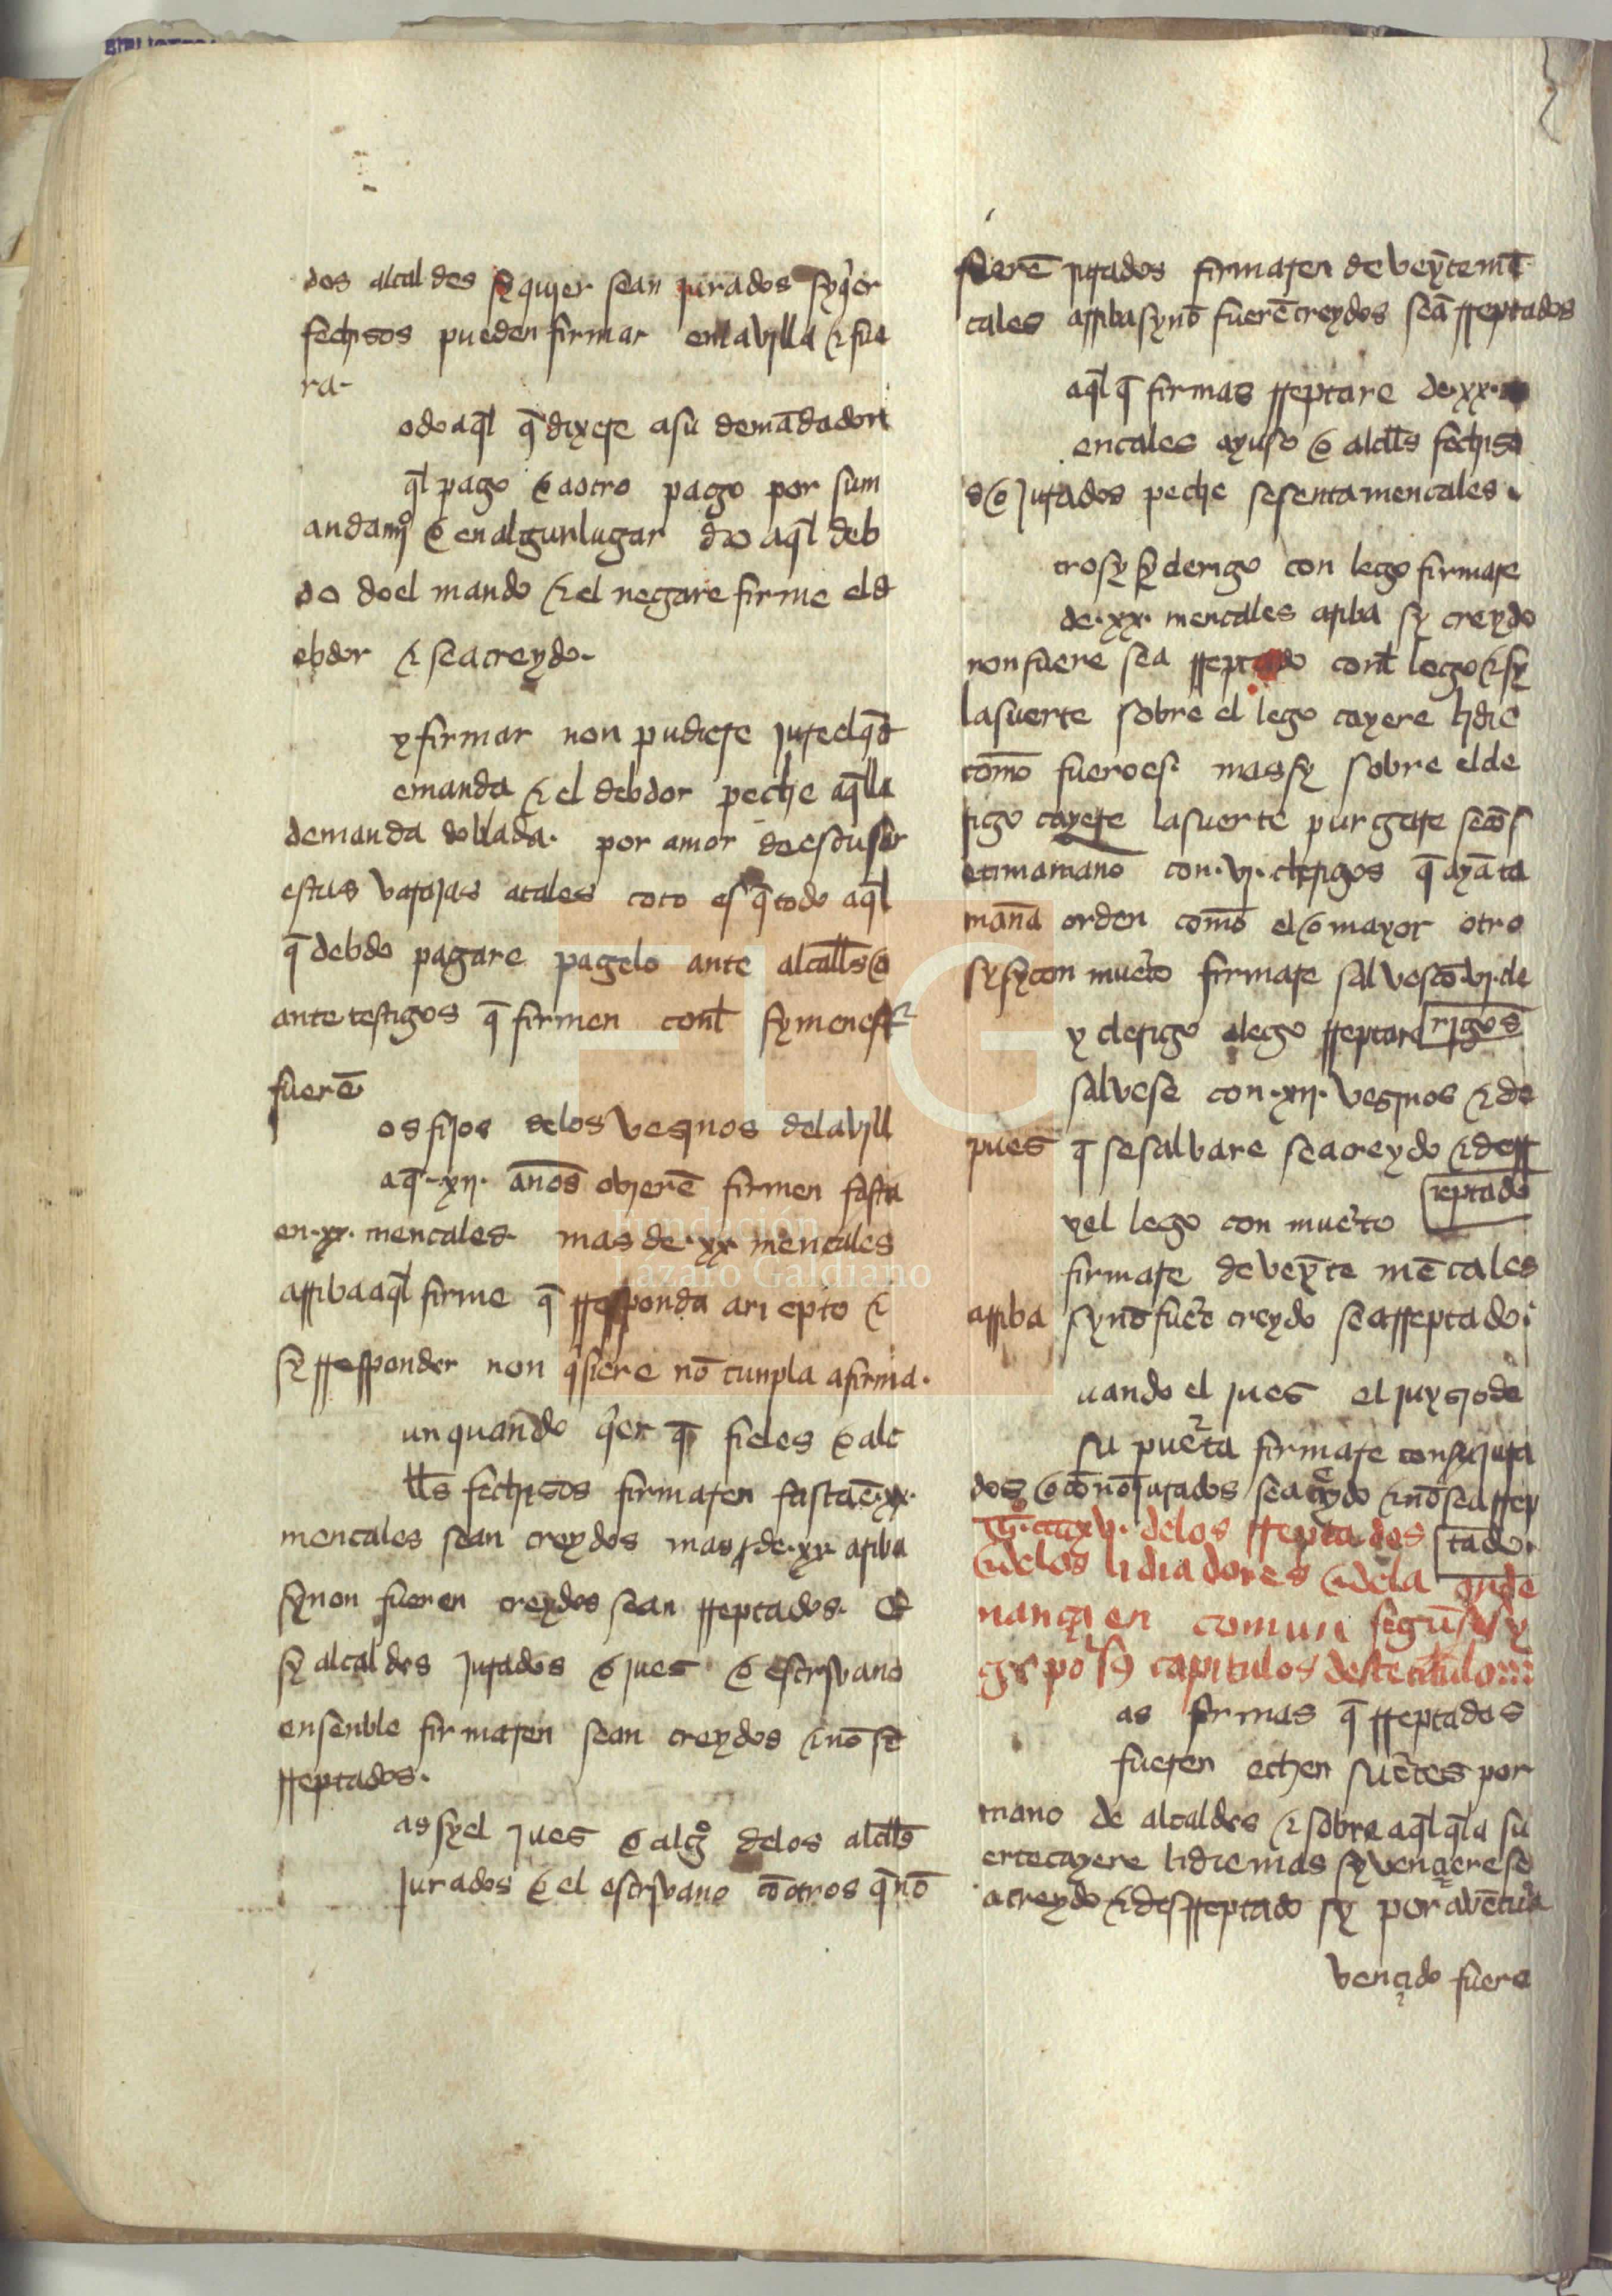 dos alcaldes sy quier sean jurados syq̃er
fechisos pueden firmar en la villa & fue
ra
odo aq̃l q̃ dixere a su demãdador
q̃l pago o a otro pago por su m
andamjº o en algun lugar dio aq̃l deb
do do el mando & el negare firme el d
ebdor & sea creydo
y firmar non pudiere jure el q̃ d
emanda & el debdor peche aq̃lla
demanda doblada por amor de escusar
estas varajas atales coto es q̃ todo aq̃l
q̃ debdo pagare pagelo ante alcalls̃ o
ante testigos q̃ firmen conl̃ sy menest̃
fuerẽ
os fijos de los vesjnos de la vill
a q̃ .xij. años obierẽ firmen fasta
en .xx. mencales mas de .xx mencales
arriba aq̃l firme q̃ rresponda a riepto &
sy rresponder non q̃siere nõ cunpla a firma
un quando q̃er q̃ fieles o alc
lls̃ fechisos firmaren fasta ẽ .xx.
mencales sean creydos mas de .xx. arriba
sy non fueren creydos sean rreptados. E
sy alcaldes jurados o jues o escrjvano
ensenble firmaren sean creydos & nõ sẽ
rreptados.
as sy el jues o algº de los alclls̃
jurados o el escrjvano cõ otros q̃ nõ
fuerẽ jurados firmaren de veyñte mẽ
cales arriba sy nõ fuerẽ creydos seã rreptados
aq̃l q̃ firmas rreptare de .xx. m
encales ayuso o alclls̃ fechiso
s o jurados peche sesenta mencales
trosy sy clerigo con lego firmare
de .xx. mencales arriba sy creydo
non fuere sea rreptado conl̃ lego & sy
la suerte sobre el lego cayere lidie
comõ fuero es. mas sy sobre el cle
rigo cayere la suerte purgare se cõ s
etima mano con .vj. clerigos q̃ ayã ta
mañã orden comõ el o mayor otro
sy sy con muger firmare salvesº .vj. cle
rigos
y clerigo a lego rreptare
salvese con .xij. vesjnos & de
pues q̃ se salvare sea creydo & desr
reptado
y el lego con muger
firmare de veyñte mẽcales
arriba sy nõ fuer creydo sea rreptado
uando el jues el juysjo de
su puerta firmare con su jura
dos o cõ nõ jurados sea creydo & nõ sea rrep
tado
tiº. cxxvj. de los rreptados
& de los lidiadores & de la orde
nança en comun segũ se sy
gẽ por sꝰ capitulos deste titulo
as firmas q̃ rreptados
fueren echen suertes por
mano de alcaldes & sobre aq̃l q̃ la su
erte cayere lidie mas sy vençiere se
a creydo & desrreptado sy por avẽtura
vençido fuere